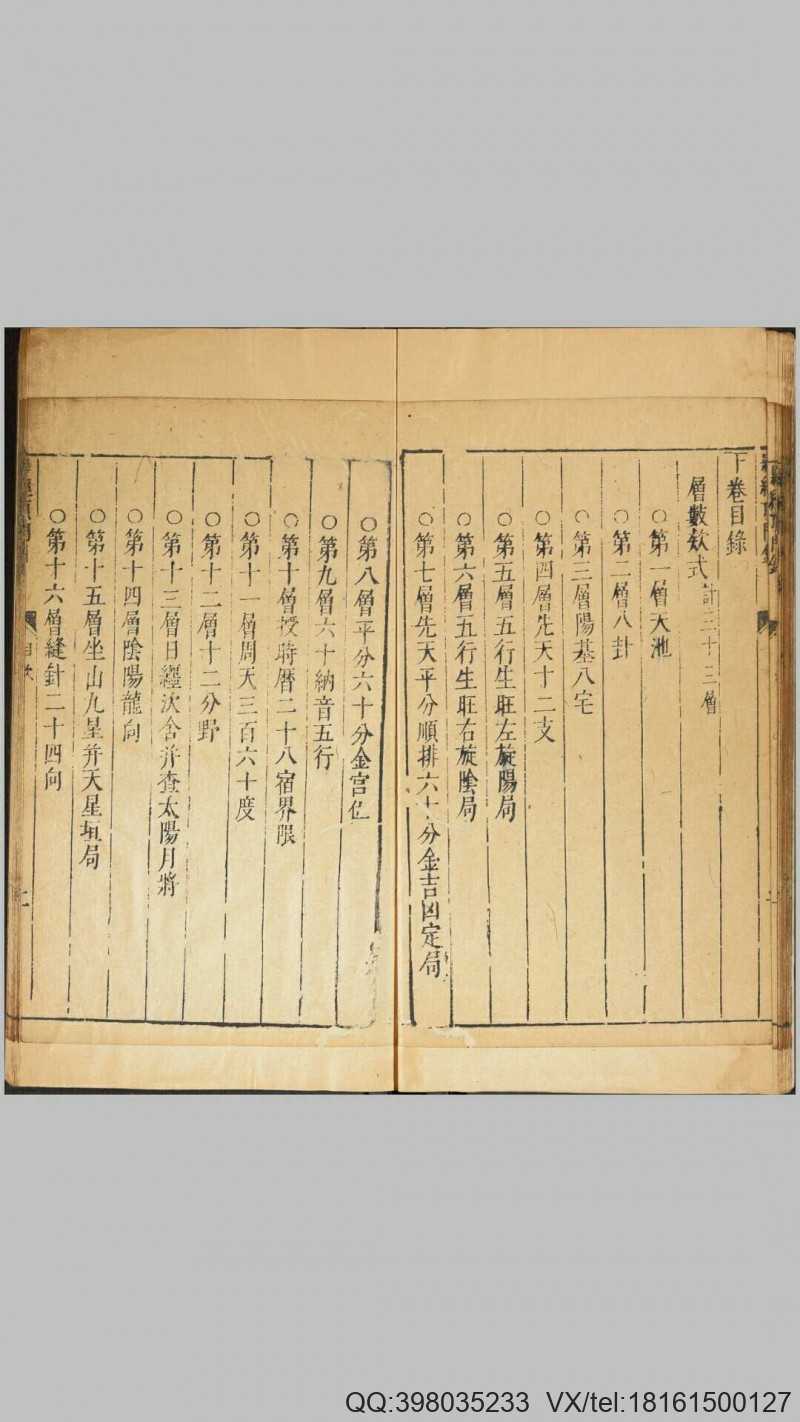 下卷目錄
層數欸式計三十三層
○第一層天池
○第二層八針
○第三層陽基八宅
○第四層先天十二支
○第五層五行生旺左旋陽局
○第六層五行生旺右旋陰局
○第七層先天平分順排六十分金吉凶定局
○第八層平分六十分金宮位
○第九層六十納音五行
○第十層授時曆二十八宿界限
○第十一層周天三百六十度
○第十二層十二分野
○第十三層日纏次舍并查太陽月將
○第十四層陰陽龍向
○第十五層坐山九星并天星垣局
○第十六層縫針二十四向
目次
QQ:398035233 VX/tel:18161500127